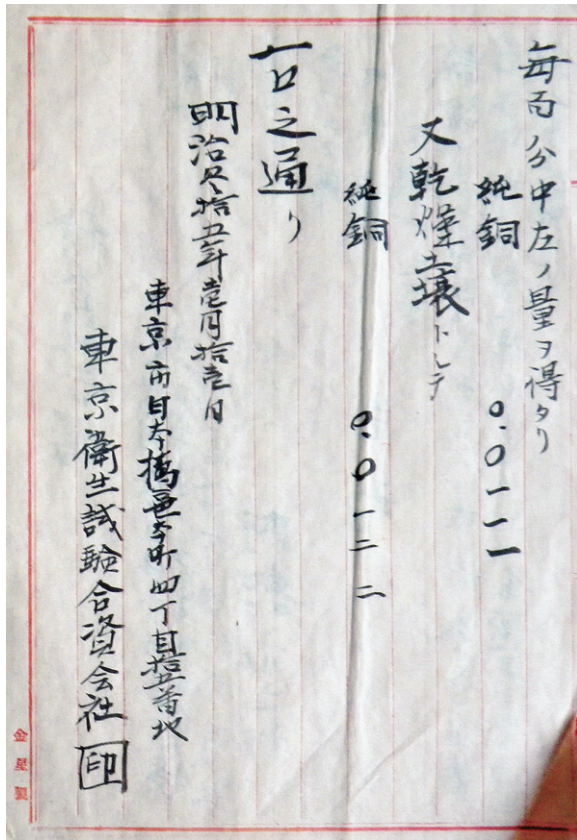 毎百分中左ノ量ヲ得タリ
純銅 0.0一一一
又乾燥土壌トシテ
純銅 0.0一二二
右之通リ
明治参拾五年壱月拾壱日
東京市日本橋区本町四丁目拾五番地
東京衛生試験合資会社 印
金星製